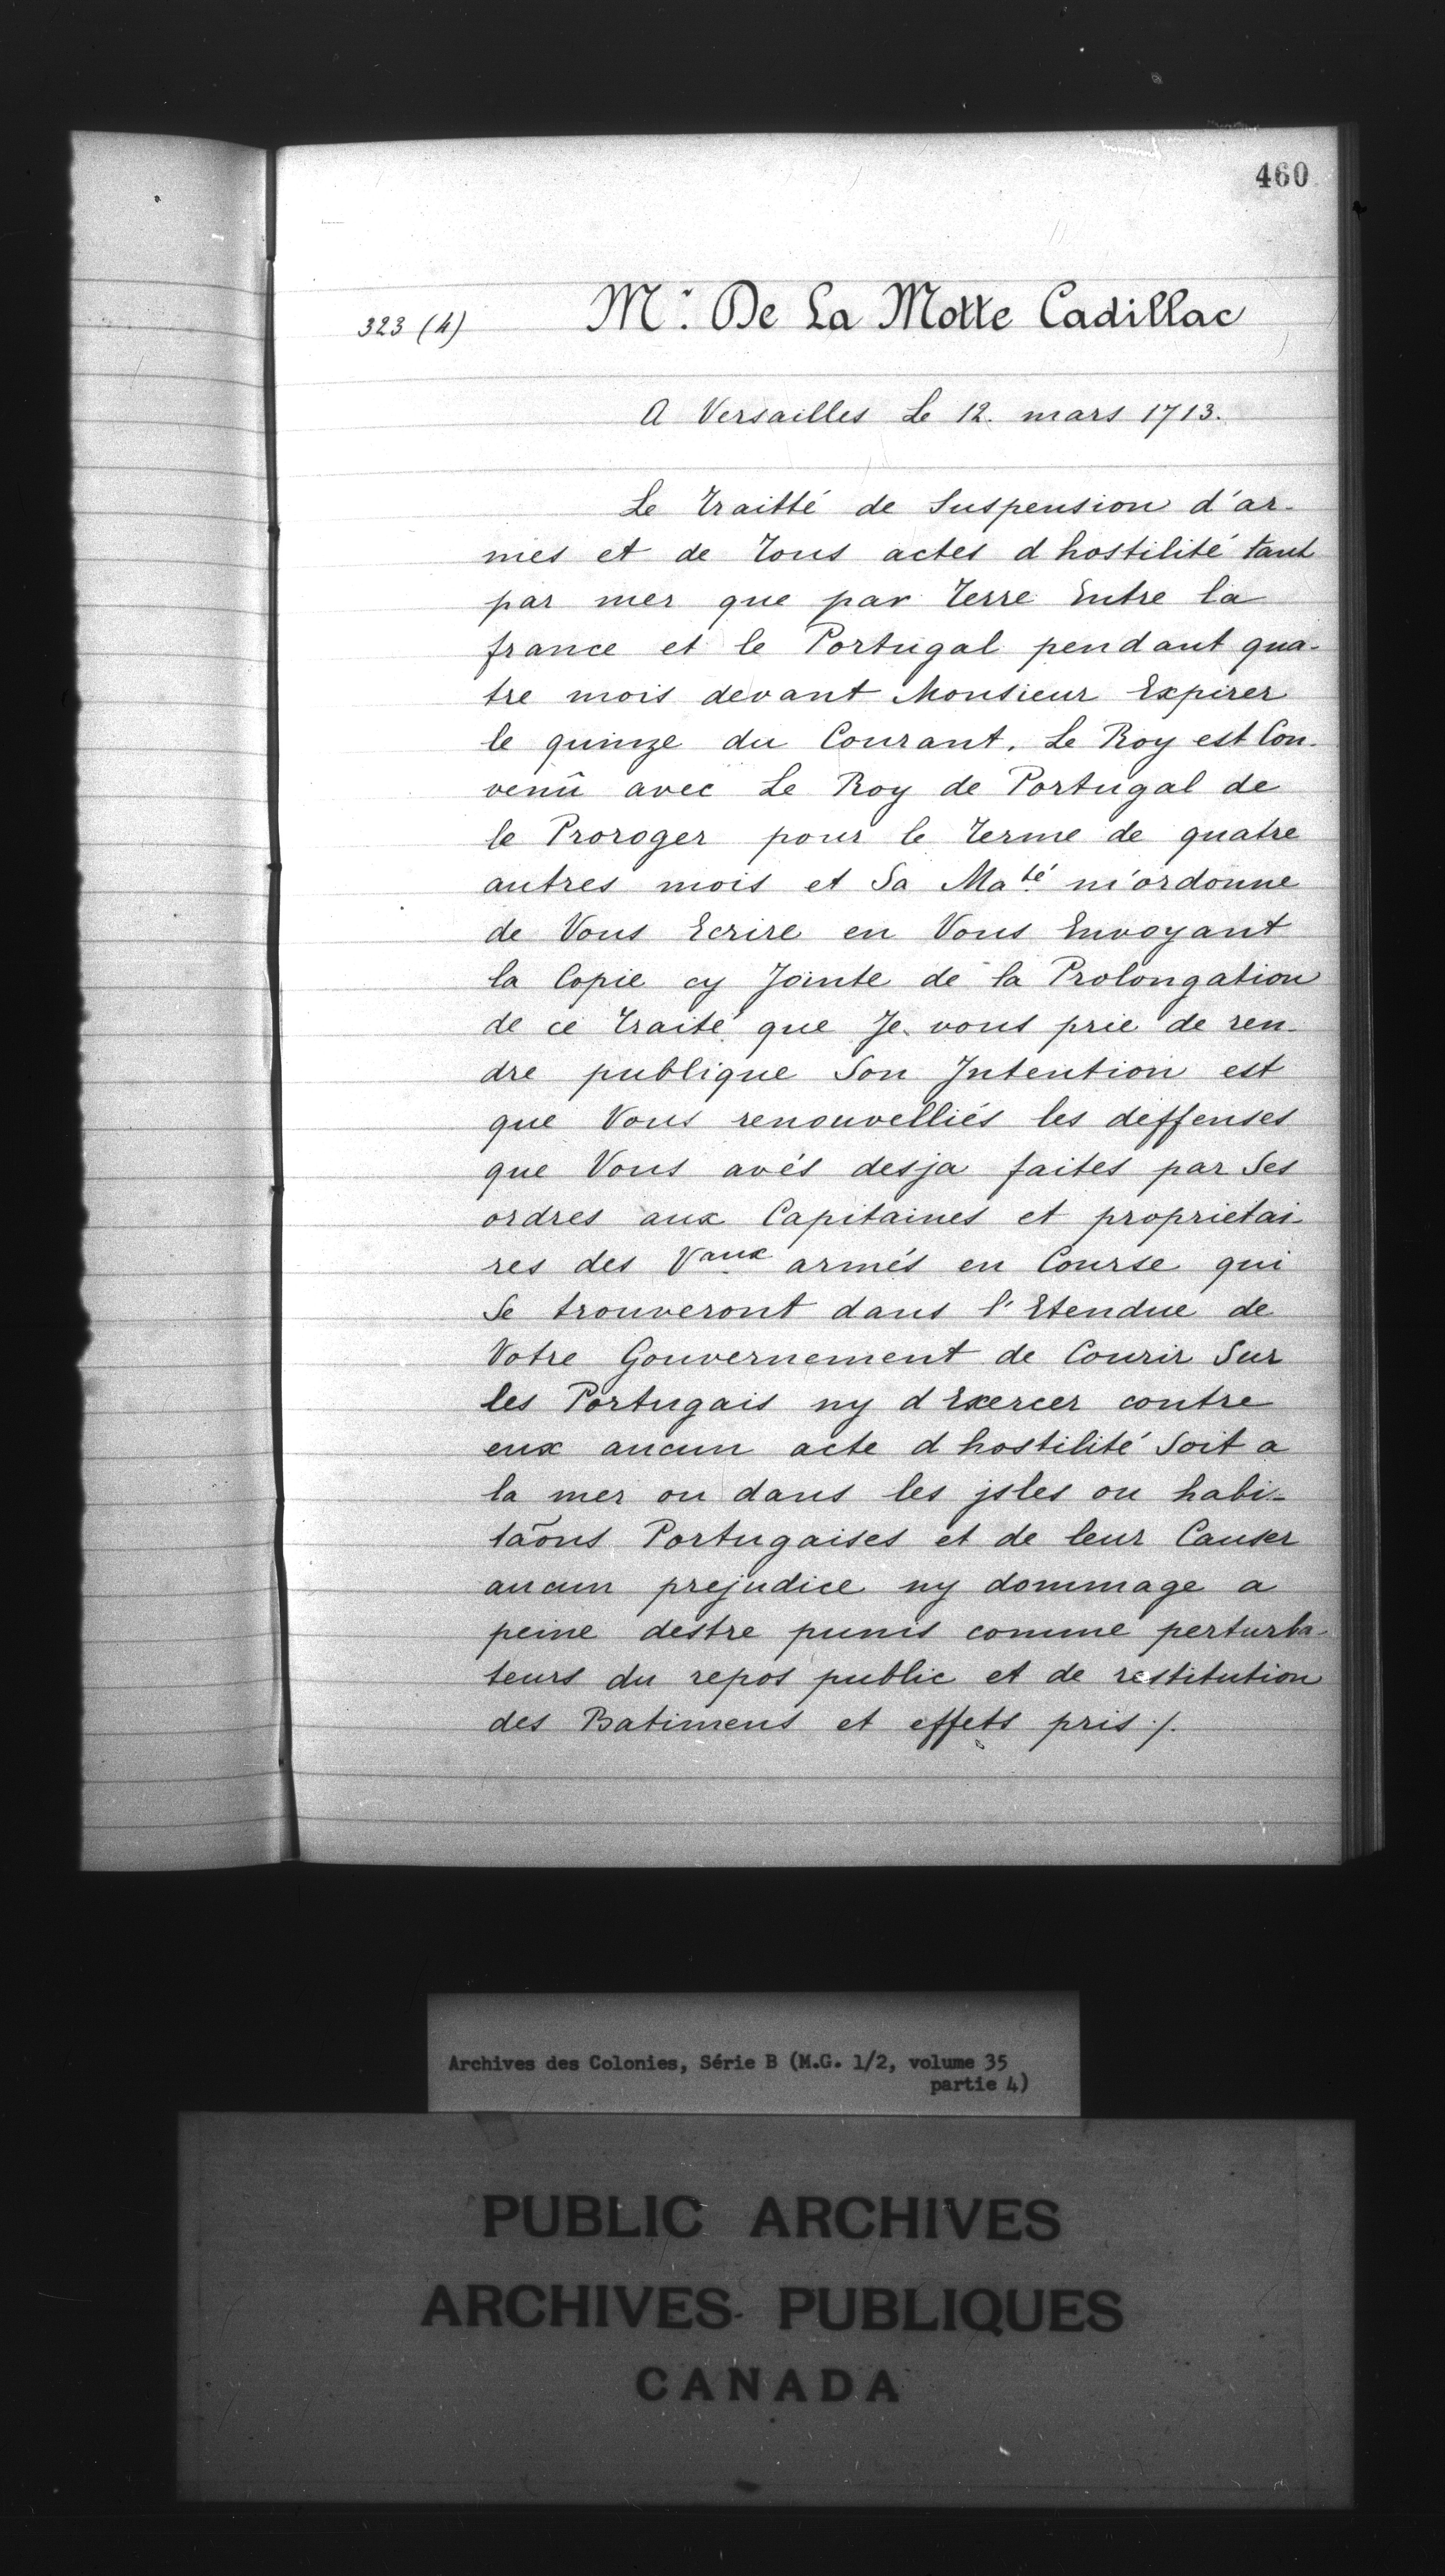 460
323 (4)
Mr. De La Motte Cadillac
A Versailles Le 12. mars 1713.
Le traitté de Suspension d'ar-
mes et de Tous actes d hostilité tant
par mer que par Terre Entre la
france et le Portugal pendant qua-
tre mois devant Monsieur Expirer
le quinze du Courant. Le Roy est Con-
venû avec Le Roy de Portugal de
le Proroger pour le Terme de quatre
autres mois et Sa Maté m'ordonne
de Vous Ecrire en Vous Envoyant
la Copie cy Jointe de la Prolongation
de ce traité que Je vous prie de ren-
dre publique Son Intention est
que Vous renouvelliés les deffenses
que Vous avés desja faites par Ses
ordres aux Capitaines et proprietai-
res des Vaux armés en Course qui
Se trouveront dans l'Etendue de
Votre Gouvernement de Courir Sur
les Portugais ny d Exercer contre
eux aucun acte d hostilité Soit a
la mer ou dans les jsles ou habi-
taõns Portugaises et de leur Causer
aucun prejudice ny dommage a
peine destre punis comme perturba-
teurs du repos public et de restitution
des Batimens et effets pris ./.
Archives des Colonies, Série B (M.G. 1/2, volume 35
partie 4)
PUBLIC ARCHIVES
ARCHIVES PUBLIQUES
CANADA